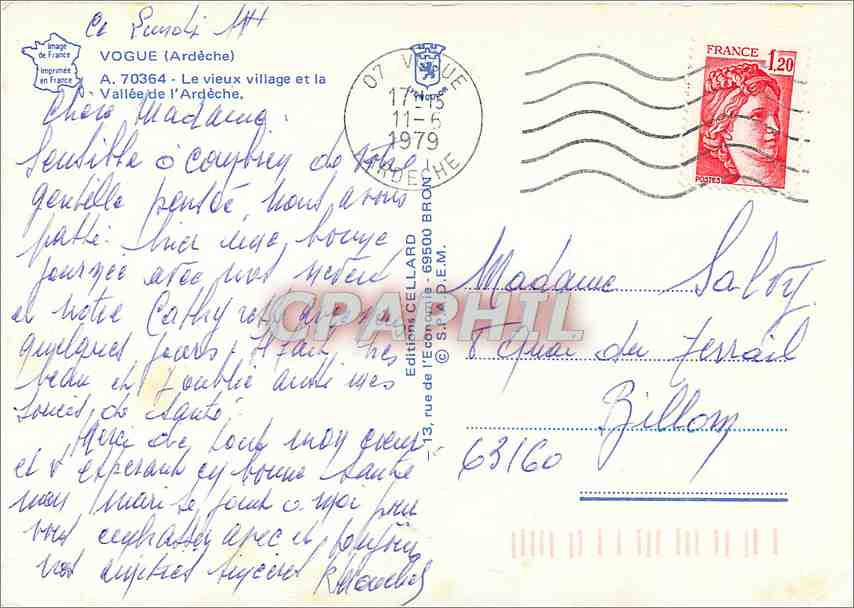 Ce Lundi
Image
de France
Imprimée
en France
VOGUE (Ardèche)
A. 70364 - Le vieux village et la
Vallée de l'Ardèche.
07 VOGUE
17-15
11-6
1979
ARDECHE
FRANCE
1,20
POSTES
Chère Madame,
Sensible à de votre
gentille pensée, nous avons
passé hier une bonne
journée avec nos
et notre Cathy
quelques jours,
beau et j'oublie aussi mes
soucis de santé.
Merci de tout mon cœur
et espérant en bonne santé
mon mari se joint à moi pour
vous embrasser avec et toujours
nos amitiés sincères
Editions CELLARD
13, rue de l'Economie - 69500 BRON
© S.P.A.D.E.M.
CPAPHIL
Madame Salvy
8 Quai du Terrail
Billom
63160